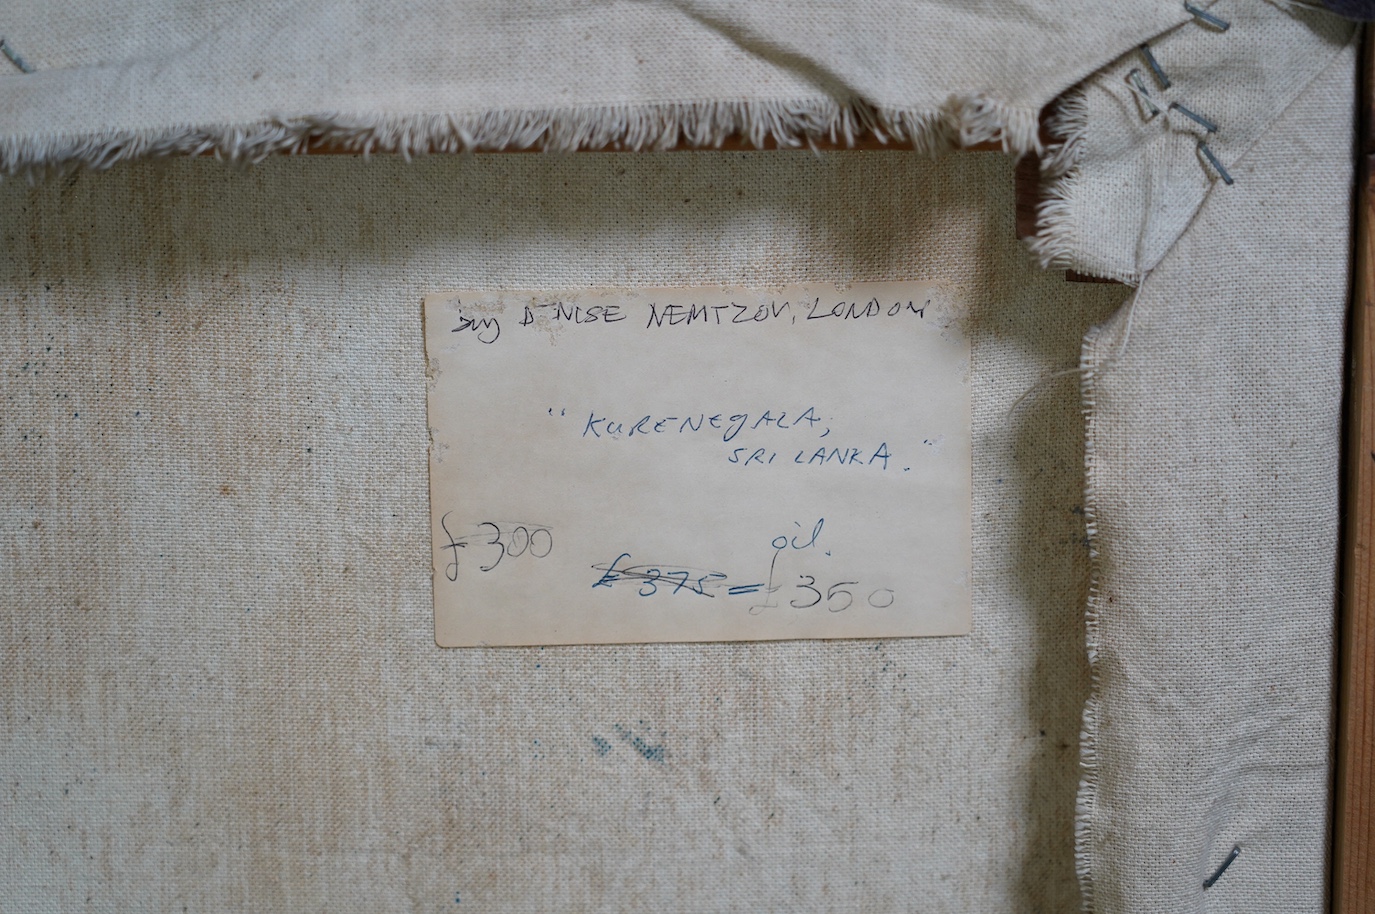 by DENISE NEMTZOV, LONDON
" KURENEGALA,
SRI LANKA."
oil.
£300
£375 = £350